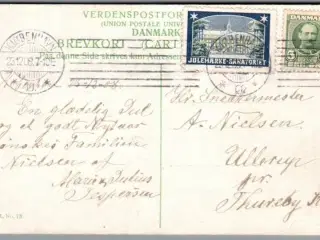 VERDENSPOSTFOR
(UNION POSTALE UNIV
DANMARK
BREVKORT (CARTE
Paa denne Side skrives kun Adressen
JULEMÆRKE-SANATORIET
En glædelig Jul
og et godt Nytaar
ønskes Familien
Nielsen af
Marie & Julius
Jespersen
Hr. Snedkermester
A. Nielsen
Ulterup
pr.
Thureby